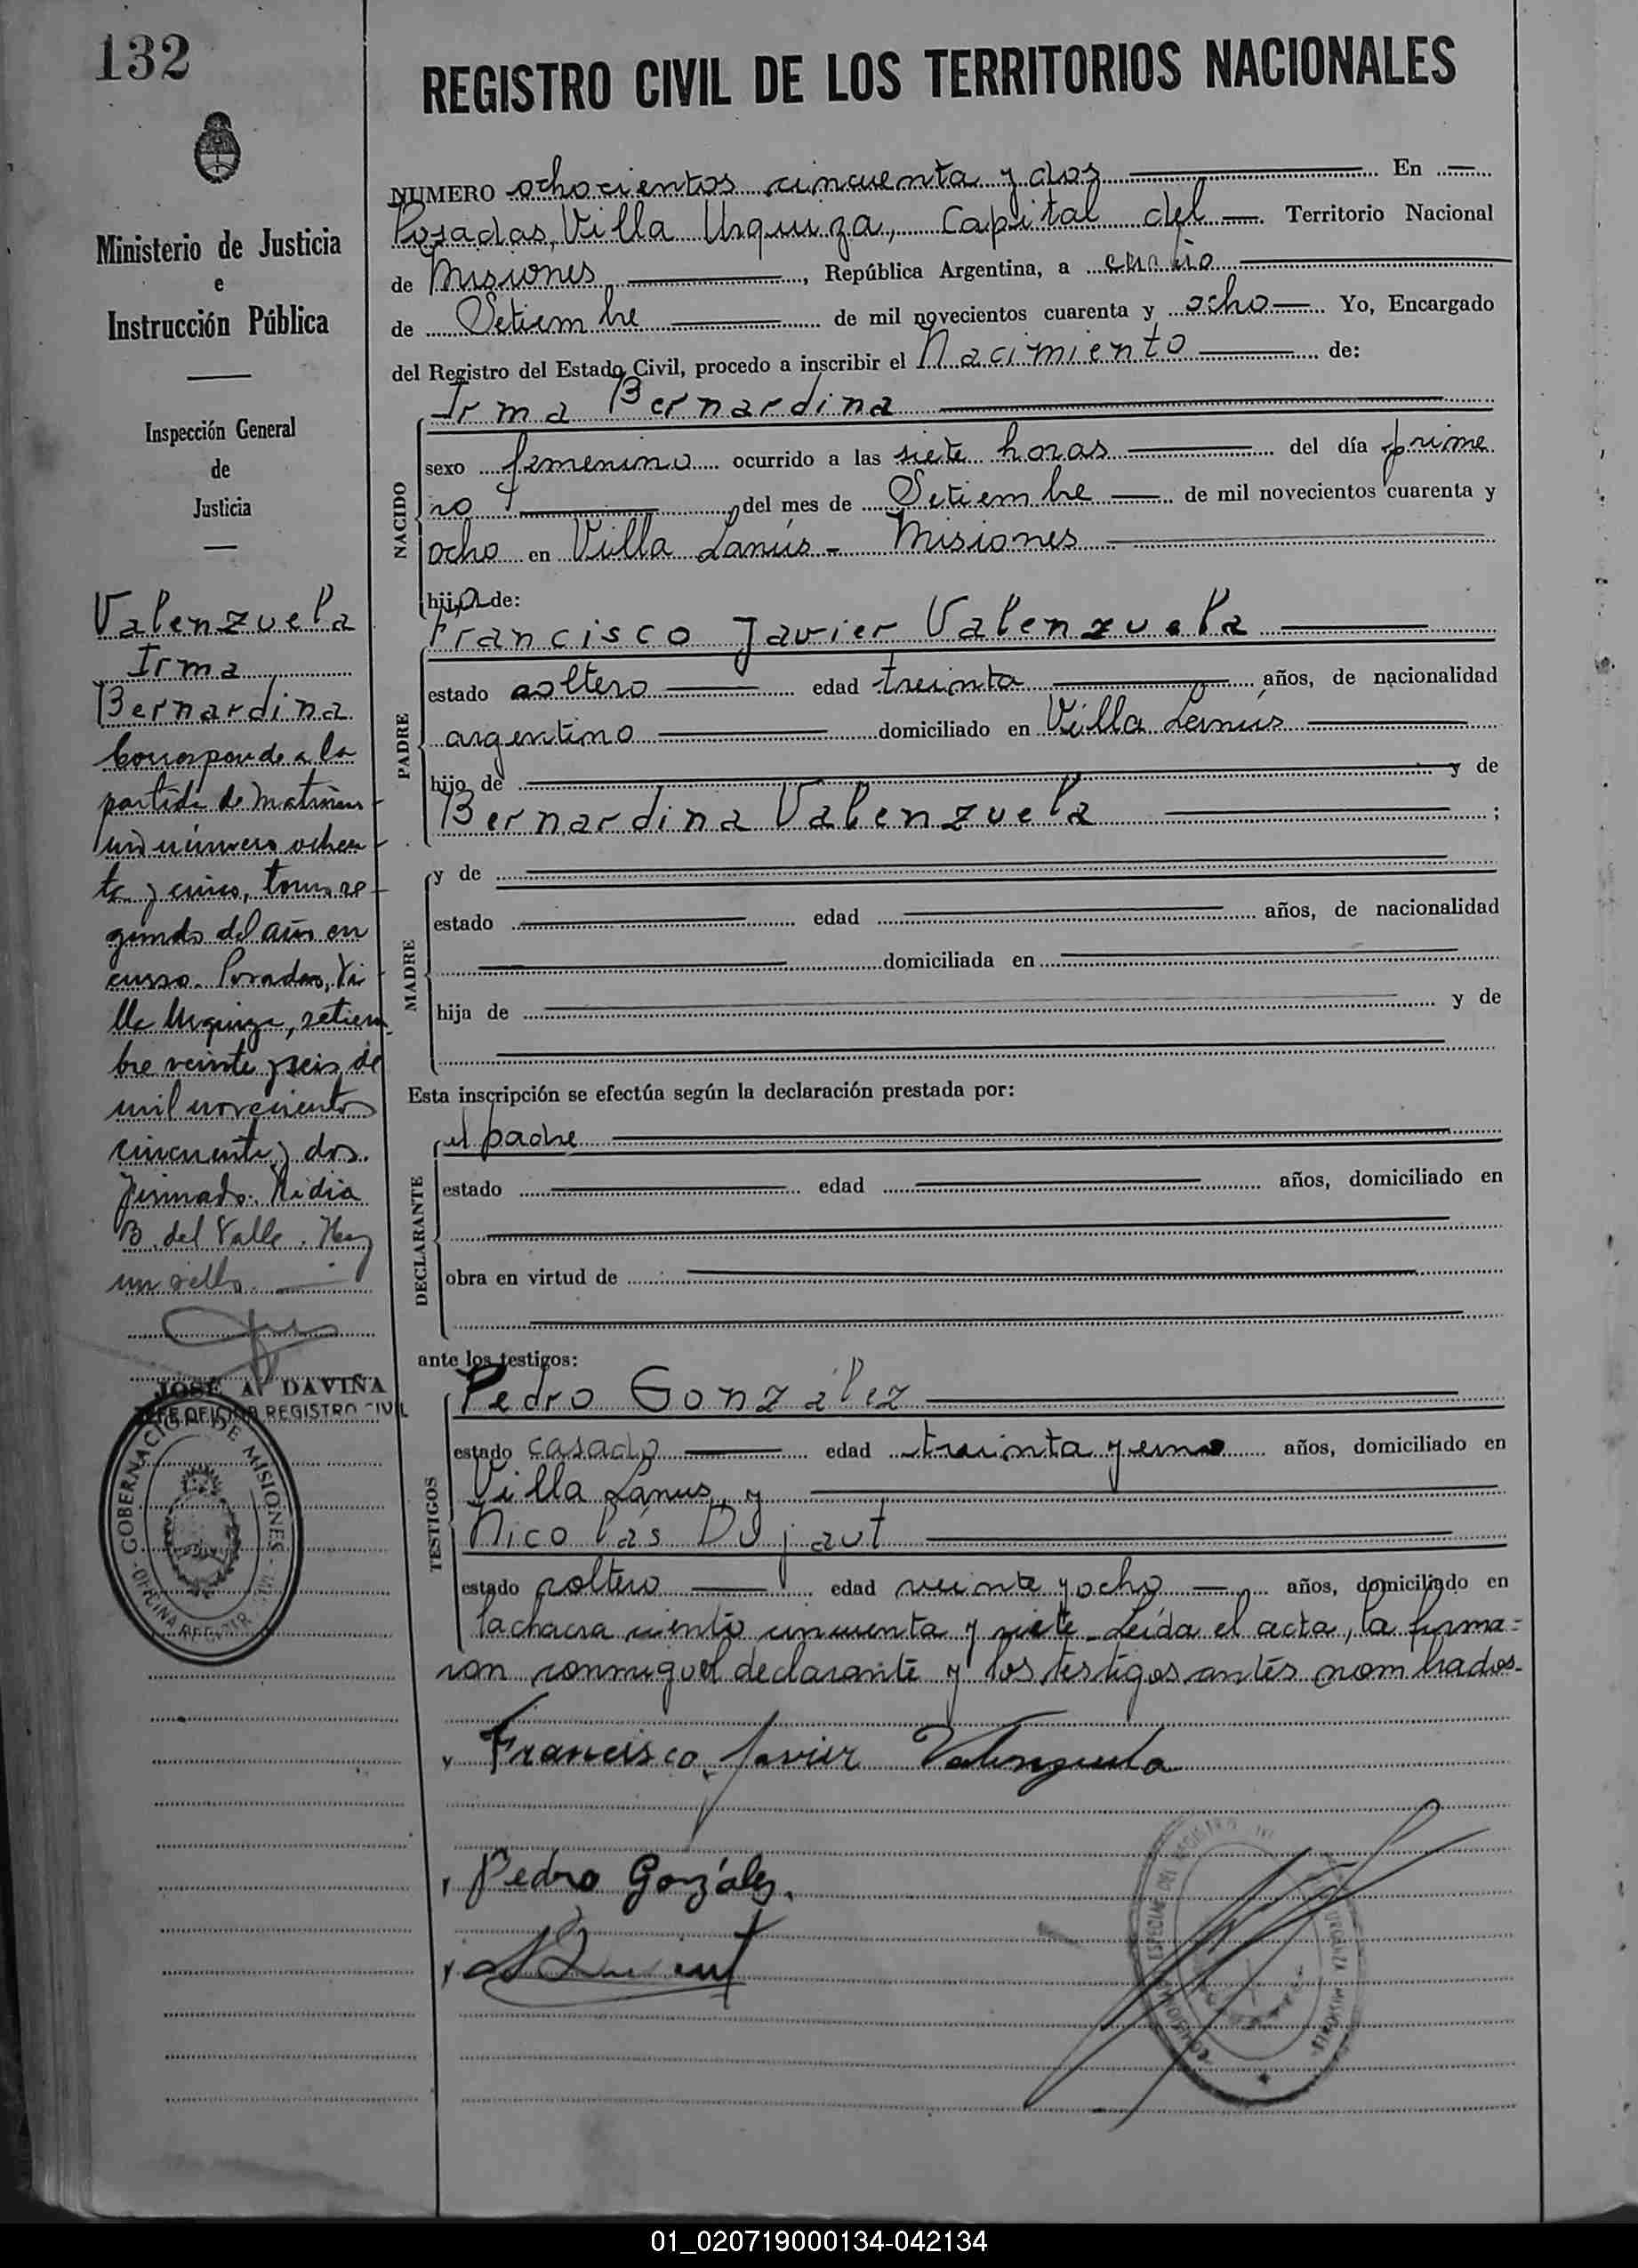 132
REGISTRO CIVIL DE LOS TERRITORIOS NACIONALES
Ministerio de Justicia
e
Instrucción Pública
Inspección General
de
Justicia
Valenzuela
Irma
Bernardina
Corresponde a la
partida de matrimo-
nio número ochen-
ta y cinco, tomo se-
gundo del año en
curso. Posadas, Vi-
lla Urquiza, setiem-
bre veinte y seis de
mil novecientos
cincuenta y dos.
Firmado: Nidia
B. del Valle. Hay
un sello.
JOSÉ A. DAVIÑA
JEFE OFICINA REGISTRO CIVIL
GOBERNACION DE MISIONES
NUMERO ochocientos cincuenta y dos En
Posadas, Villa Urquiza, Capital del Territorio Nacional
de Misiones, República Argentina, a cuatro
de Setiembre de mil novecientos cuarenta y ocho Yo, Encargado
del Registro del Estado Civil, procedo a inscribir el Nacimiento de:
NACIDO
Irma Bernardina
sexo femenino ocurrido a las siete horas del día prime
ro del mes de Setiembre de mil novecientos cuarenta y
ocho en Villa Lanús - Misiones
hija de:
PADRE
Francisco Javier Valenzuela
estado soltero edad treinta años, de nacionalidad
argentino domiciliado en Villa Lanús
hijo de y de
Bernardina Valenzuela ;
MADRE
y de
estado edad años, de nacionalidad
domiciliada en
hija de y de
Esta inscripción se efectúa según la declaración prestada por:
DECLARANTE
el padre
estado edad años, domiciliado en
obra en virtud de
ante los testigos:
TESTIGOS
Pedro González
estado casado edad treinta y uno años, domiciliado en
Villa Lanus, y
Nicolás Dujaut
estado soltero edad veinte y ocho años, domiciliado en
la chacra ciento cincuenta y siete. Leída el acta, la firma=
ron conmigo el declarante y los testigos antes nombrados.
Francisco Javier Valenzuela
Pedro González.
01_020719000134-042134